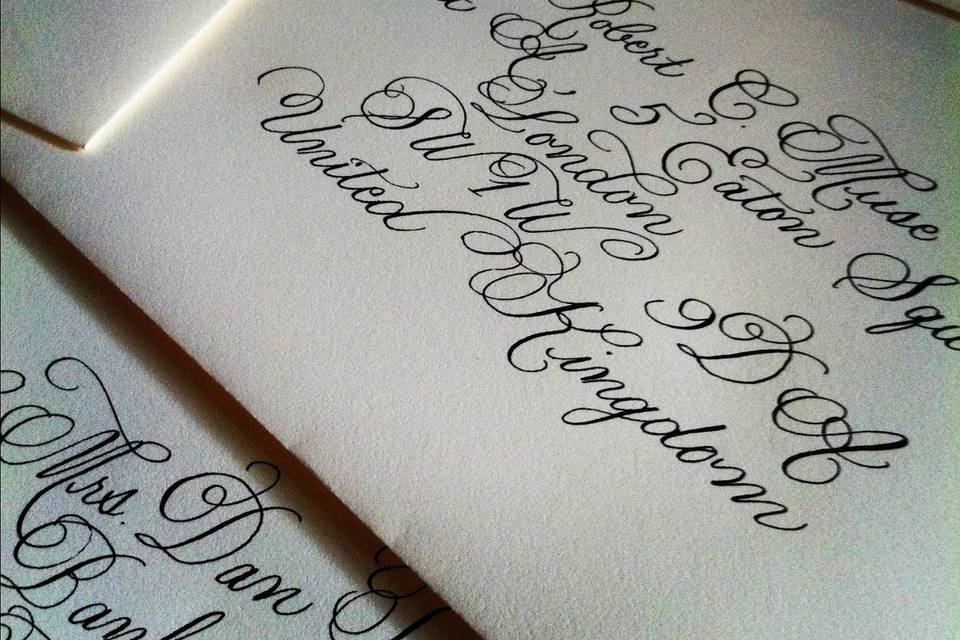 Robert C. Muse
A, 5 Eaton Squ
London
SW1W 9DA
United Kingdom
Mrs. Dan